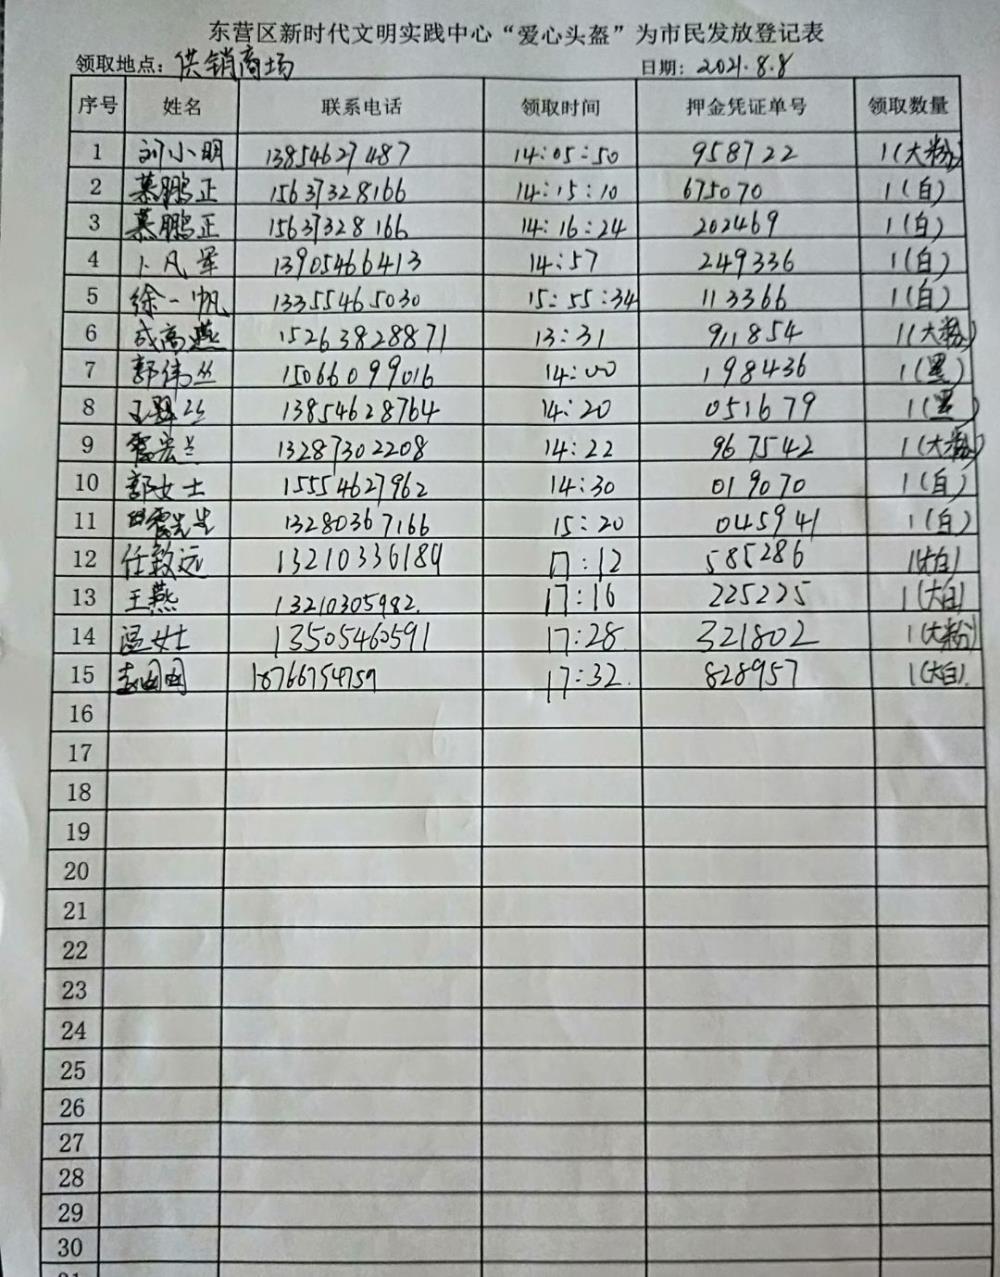 东营区新时代文明实践中心“爱心头盔”为市民发放登记表
领取地点：供销商场 日期：2021.8.8
序号 姓名 联系电话 领取时间 押金凭证单号 领取数量
1 刘小明 13854627487 14:05:50 958722 1(大粉)
2 慕鹏正 15637328166 14:15:10 675070 1(白)
3 慕鹏正 15637328166 14:16:24 202469 1(白)
4 卜凡军 13905466413 14:57 249336 1(白)
5 徐一帆 13355465030 15:55:34 113366 1(白)
6 成高燕 15263828871 13:31 911854 1(大粉)
7 郭伟丛 15066099016 14:00 198436 1(黑)
8 13854628764 14:20 051679 1(黑)
9 霍宏兰 13287302208 14:22 967542 1(大粉)
10 郭女士 15554627962 14:30 019070 1(白)
11 13280367166 15:20 045941 1(白)
12 任致远 13210336189 17:12 585286 1(大白)
13 王燕 13210305982. 17:16 225225 1(大白)
14 温女士 13505460591 17:28 321802 1(大粉)
15 18766754759 17:32. 828957 1(大白).
16
17
18
19
20
21
22
23
24
25
26
27
28
29
30